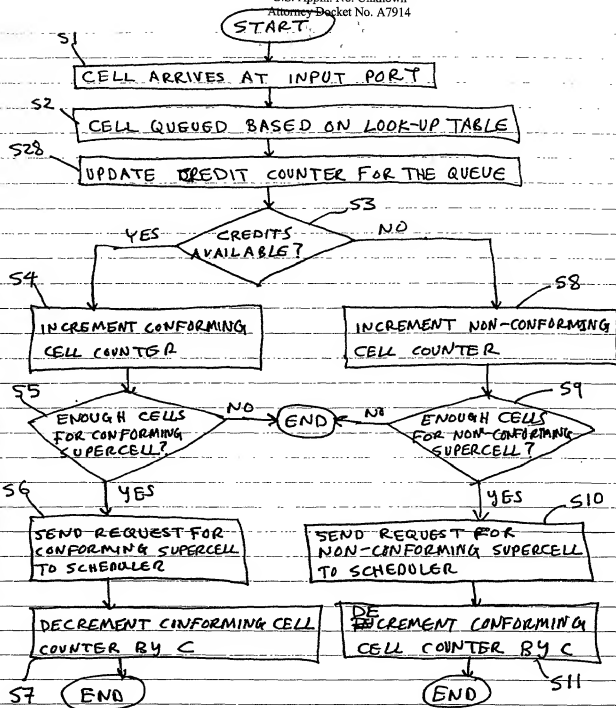 Attorney Docket No. A7914
START
S1
CELL ARRIVES AT INPUT PORT
S2
CELL QUEUED BASED ON LOOK-UP TABLE
S28
UPDATE CREDIT COUNTER FOR THE QUEUE
S3
YES
CREDITS
AVAILABLE?
NO
S4
INCREMENT CONFORMING
CELL COUNTER
S8
INCREMENT NON-CONFORMING
CELL COUNTER
S5
ENOUGH CELLS
FOR CONFORMING
SUPERCELL?
NO
END
NO
S9
ENOUGH CELLS
FOR NON-CONFORMING
SUPERCELL?
YES
YES
S6
SEND REQUEST FOR
CONFORMING SUPERCELL
TO SCHEDULER
S10
SEND REQUEST FOR
NON-CONFORMING SUPERCELL
TO SCHEDULER
DECREMENT CONFORMING CELL
COUNTER BY C
S7
END
DECREMENT CONFORMING
CELL COUNTER BY C
S11
END